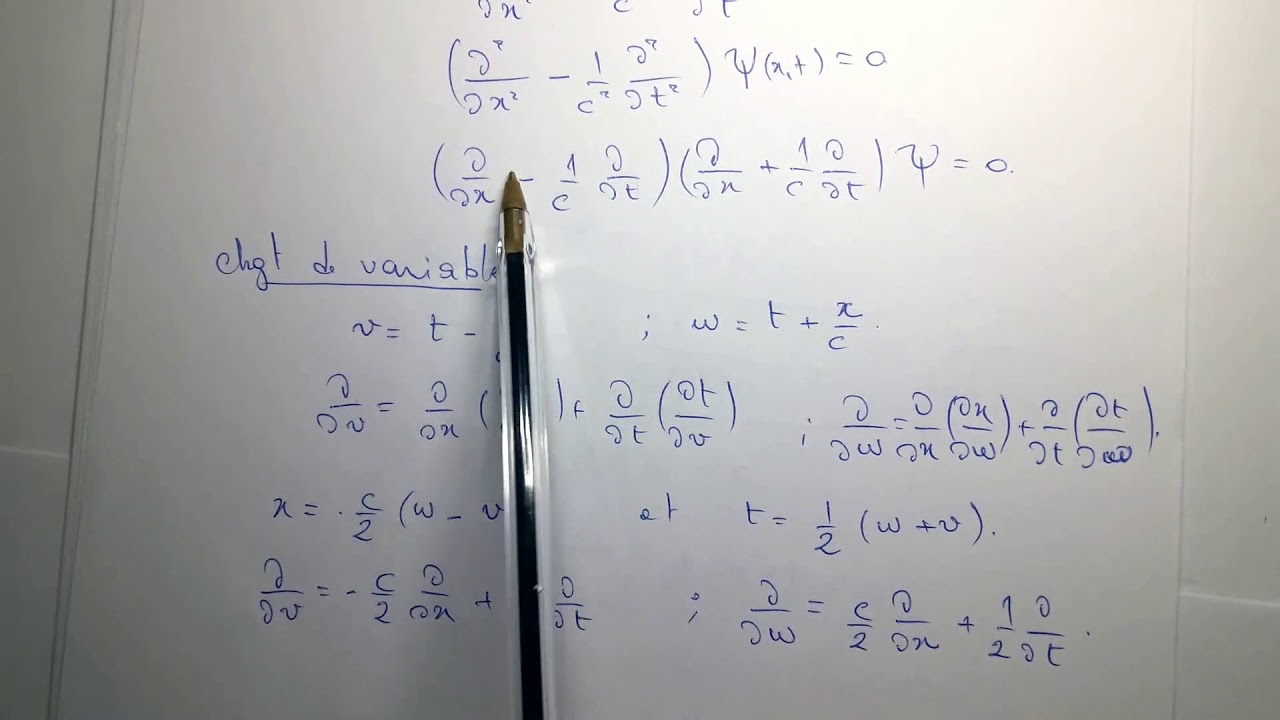 ∂x² c ∂t
(∂²/∂x² − 1/c² ∂²/∂t²) Ψ(x,t) = 0
(∂/∂x − 1/c ∂/∂t)(∂/∂x + 1/c ∂/∂t) Ψ = 0.
chgt de variable
v = t − ; w = t + x/c.
∂/∂v = ∂/∂x ( ) + ∂/∂t (∂t/∂v) ; ∂/∂w = ∂/∂x (∂x/∂w) + ∂/∂t (∂t/∂w).
x = c/2 (w − v et t = 1/2 (w + v).
∂/∂v = − c/2 ∂/∂x + ∂/∂t ; ∂/∂w = c/2 ∂/∂x + 1/2 ∂/∂t.